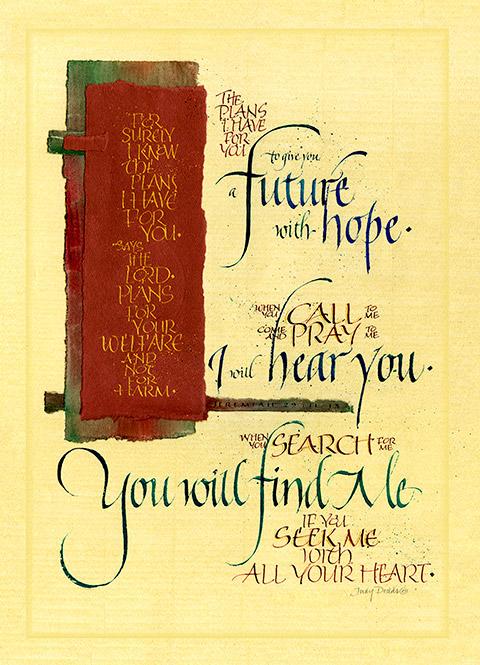 FOR
SURELY
I KNOW
THE
PLANS
I HAVE
FOR
YOU.
SAYS
THE
LORD.
PLANS
FOR
YOUR
WELFARE
AND
NOT
FOR
HARM.
THE
PLANS
I HAVE
FOR
YOU
to give you
a future
with hope.
WHEN YOU CALL TO ME
COME AND PRAY TO ME
I will hear you.
JEREMIAH 29:11-13
WHEN YOU SEARCH FOR ME
You will find Me
IF YOU
SEEK ME
with
ALL YOUR HEART.
Judy Dodds